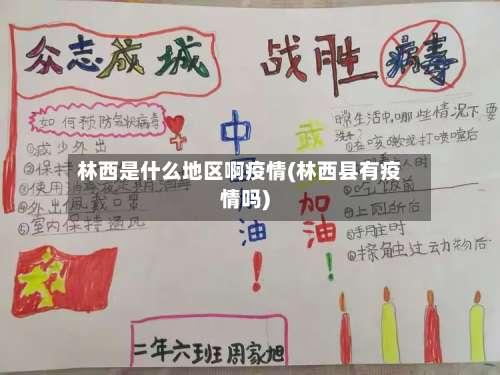 众志成城
战胜病毒
如何预防冠状病毒
①减少外出
②保持
③使用消毒液定期消毒
④外出佩戴口罩
⑤室内保持通风
中国加油！
武汉加油！
日常生活中哪些情况下要
洗手？
①在咳嗽或打喷嚏后
林西是什么地区啊疫情(林西县有疫
情吗)
③吃饭前
④上厕所后
⑤手脏时
⑥接触过动物后
二年六班 周家旭